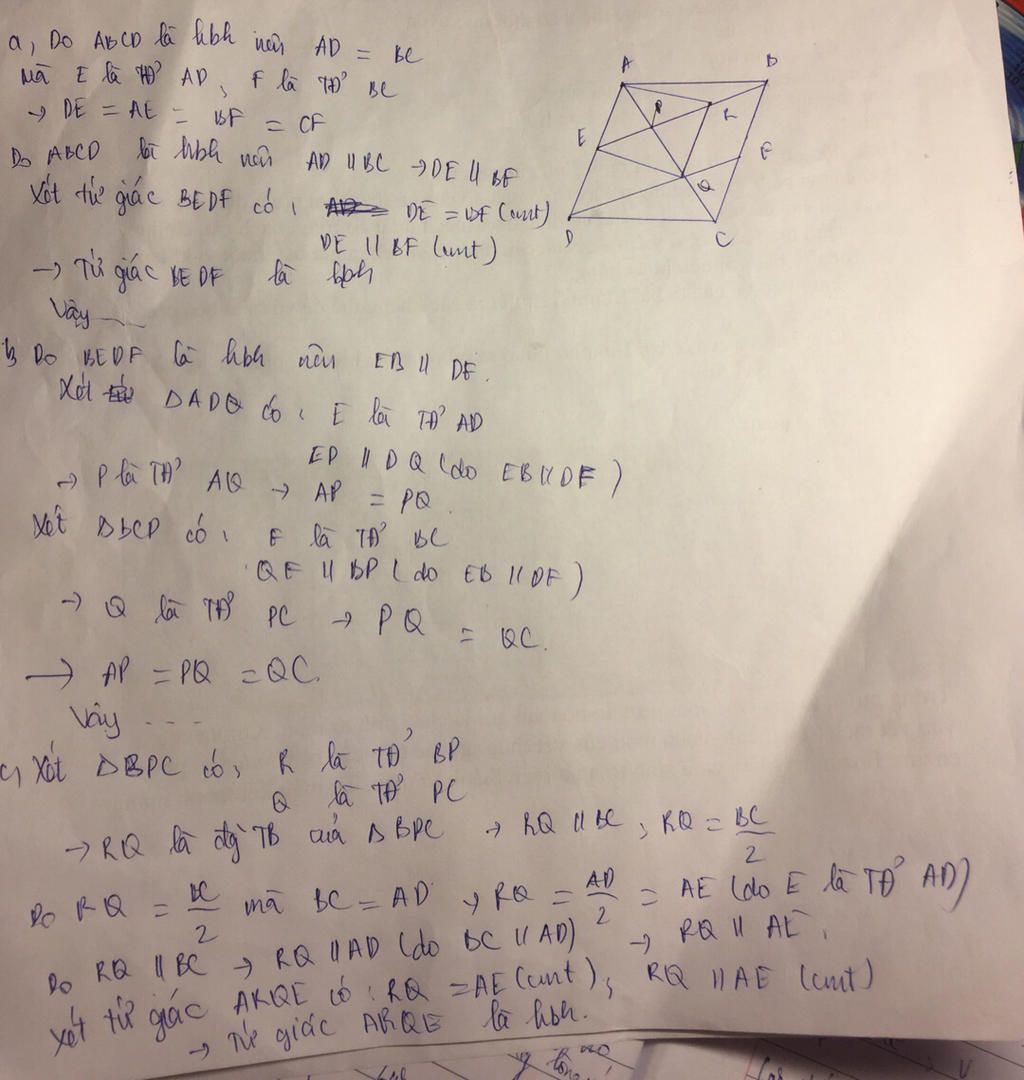 a, Do ABCD là hbh nên AD = BC
mà E là TĐ' AD, F là TĐ' BC
→ DE = AE = BF = CF
Do ABCD là hbh nên AD // BC → DE // BF
Xét tứ giác BEDF có: DE = BF (cmt)
DE // BF (cmt)
→ Tứ giác BEDF là hbh
Vậy
b, Do BEDF là hbh nên EB // DF.
Xét ΔADQ có: E là TĐ' AD
EP // DQ (do EB // DF)
→ P là TĐ' AQ → AP = PQ.
Xét ΔBCP có: F là TĐ' BC
QF // BP (do EB // DF)
→ Q là TĐ' PC → PQ = QC.
→ AP = PQ = QC.
Vậy ----
c, Xét ΔBPC có: R là TĐ' BP
Q là TĐ' PC
→ RQ là đg TB của ΔBPC → RQ // BC, RQ = BC/2
Do RQ = BC/2 mà BC = AD → RQ = AD/2 = AE (do E là TĐ' AD)
Do RQ // BC → RQ // AD (do BC // AD) → RQ // AE.
Xét tứ giác ARQE có: RQ = AE (cmt), RQ // AE (cmt)
→ Tứ giác ARQE là hbh.
A B
P R
E F
Q
D C